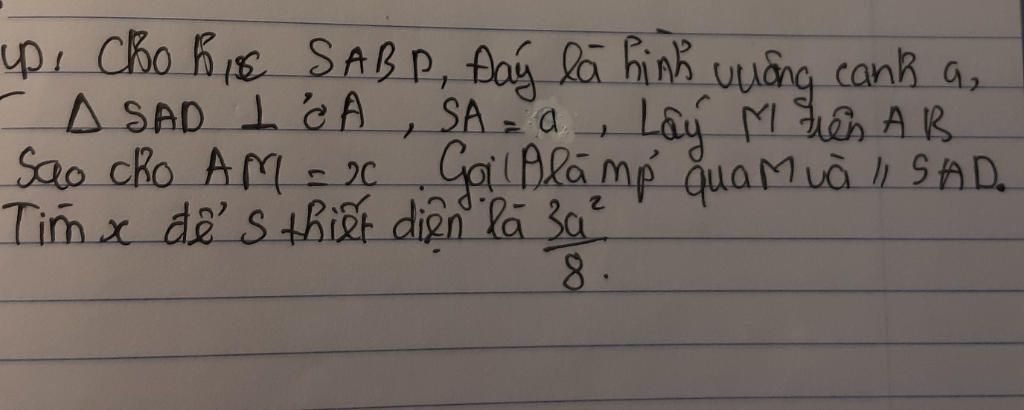 VD: Cho h, SABD, đáy là hình vuông cạnh a,
Δ SAD ⊥ ở A, SA = a, Lấy M trên AB
Sao cho AM = x. Gọi là mp qua M và // SAD.
Tìm x để S thiết diện là 3a²/8.